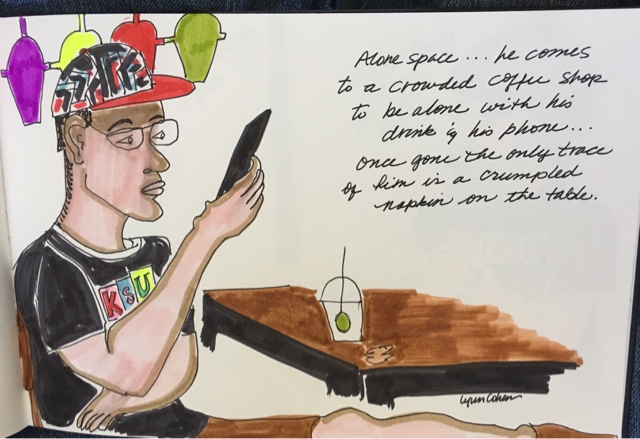 Alone space... he comes
to a crowded coffee shop
to be alone with his
drink & his phone...
once gone the only trace
of him is a crumpled
napkin on the table.
KSU
Lynn Cohen